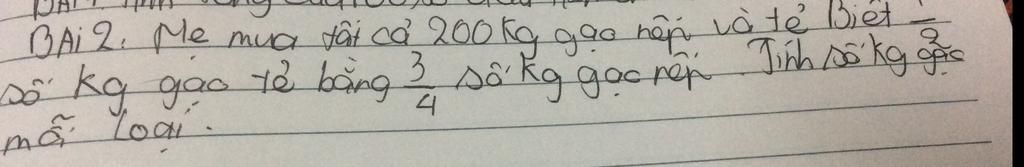 BÀI 2. Mẹ mua tất cả 200 kg gạo nếp và tẻ Biết 1/2
số kg gạo tẻ bằng 3/4 số kg gạo nếp. Tính số kg gạo
mỗi loại.